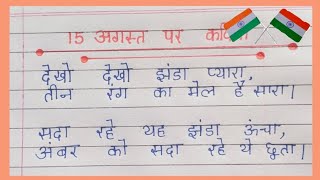 15 अगस्त पर कविता
देखो देखो झंडा प्यारा,
तीन रंग का मेल है सारा।
सदा रहे यह झंडा ऊंचा,
अंबर को सदा रहे ये छूता।